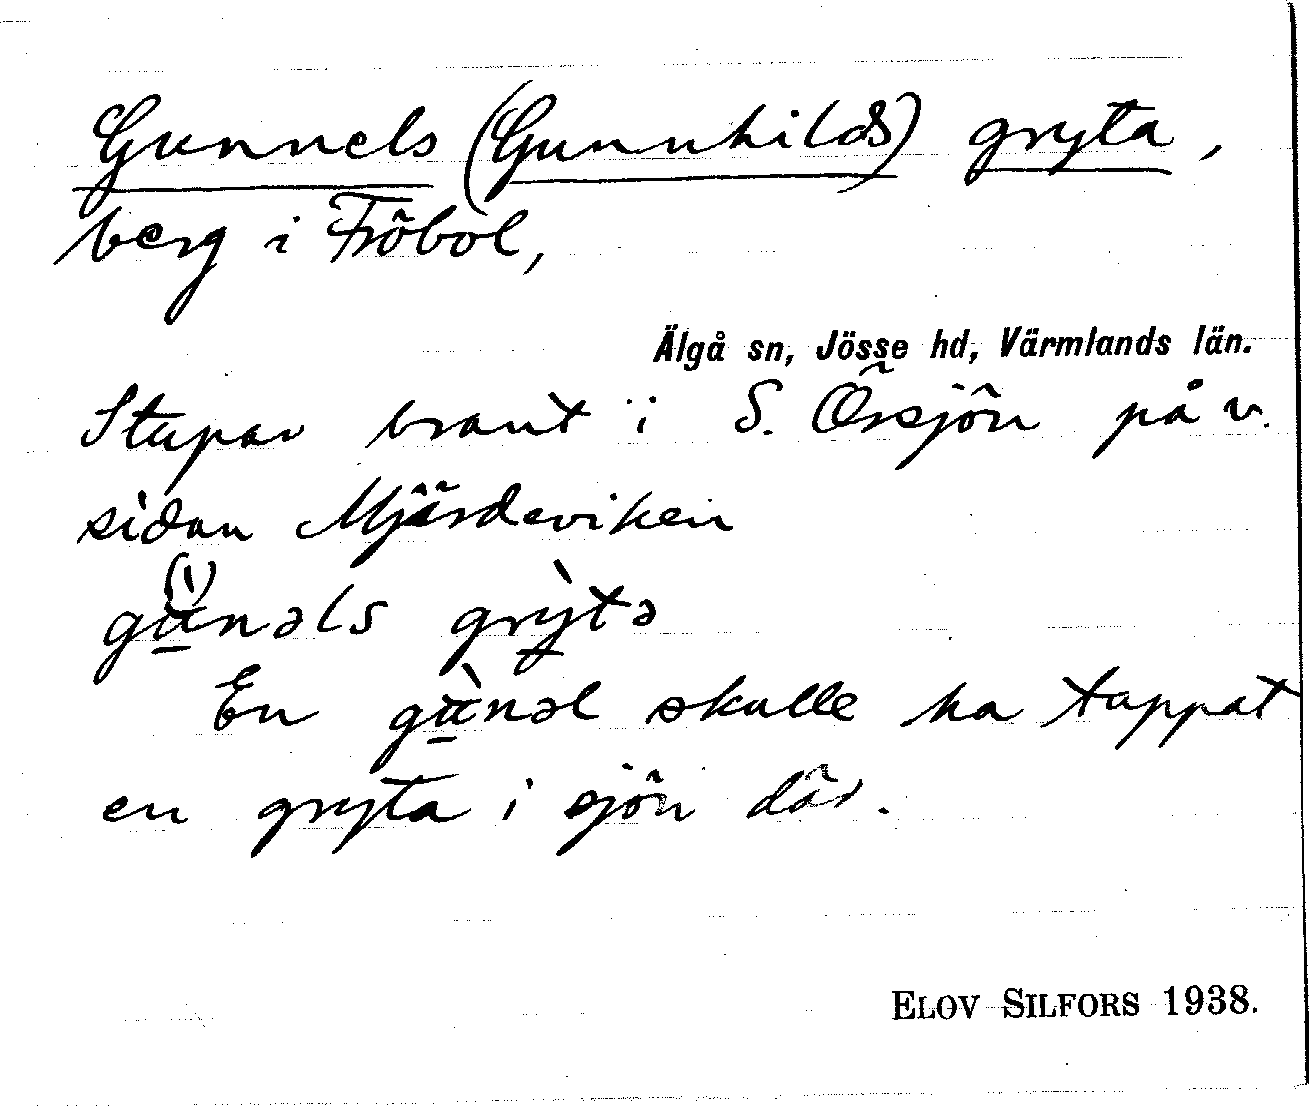 Gunnels (Gunnhilds) gryta,
berg i Fröbol,
Älgå sn, Jösse hd, Värmlands län.
Stupar brant i S. Örsjön på v.
sidan Mjärdeviken
gù̱nəls grỳ̱tə
En gù̱nəl skulle ha tappat
en gryta i sjön där.
ELOV SILFORS 1938.